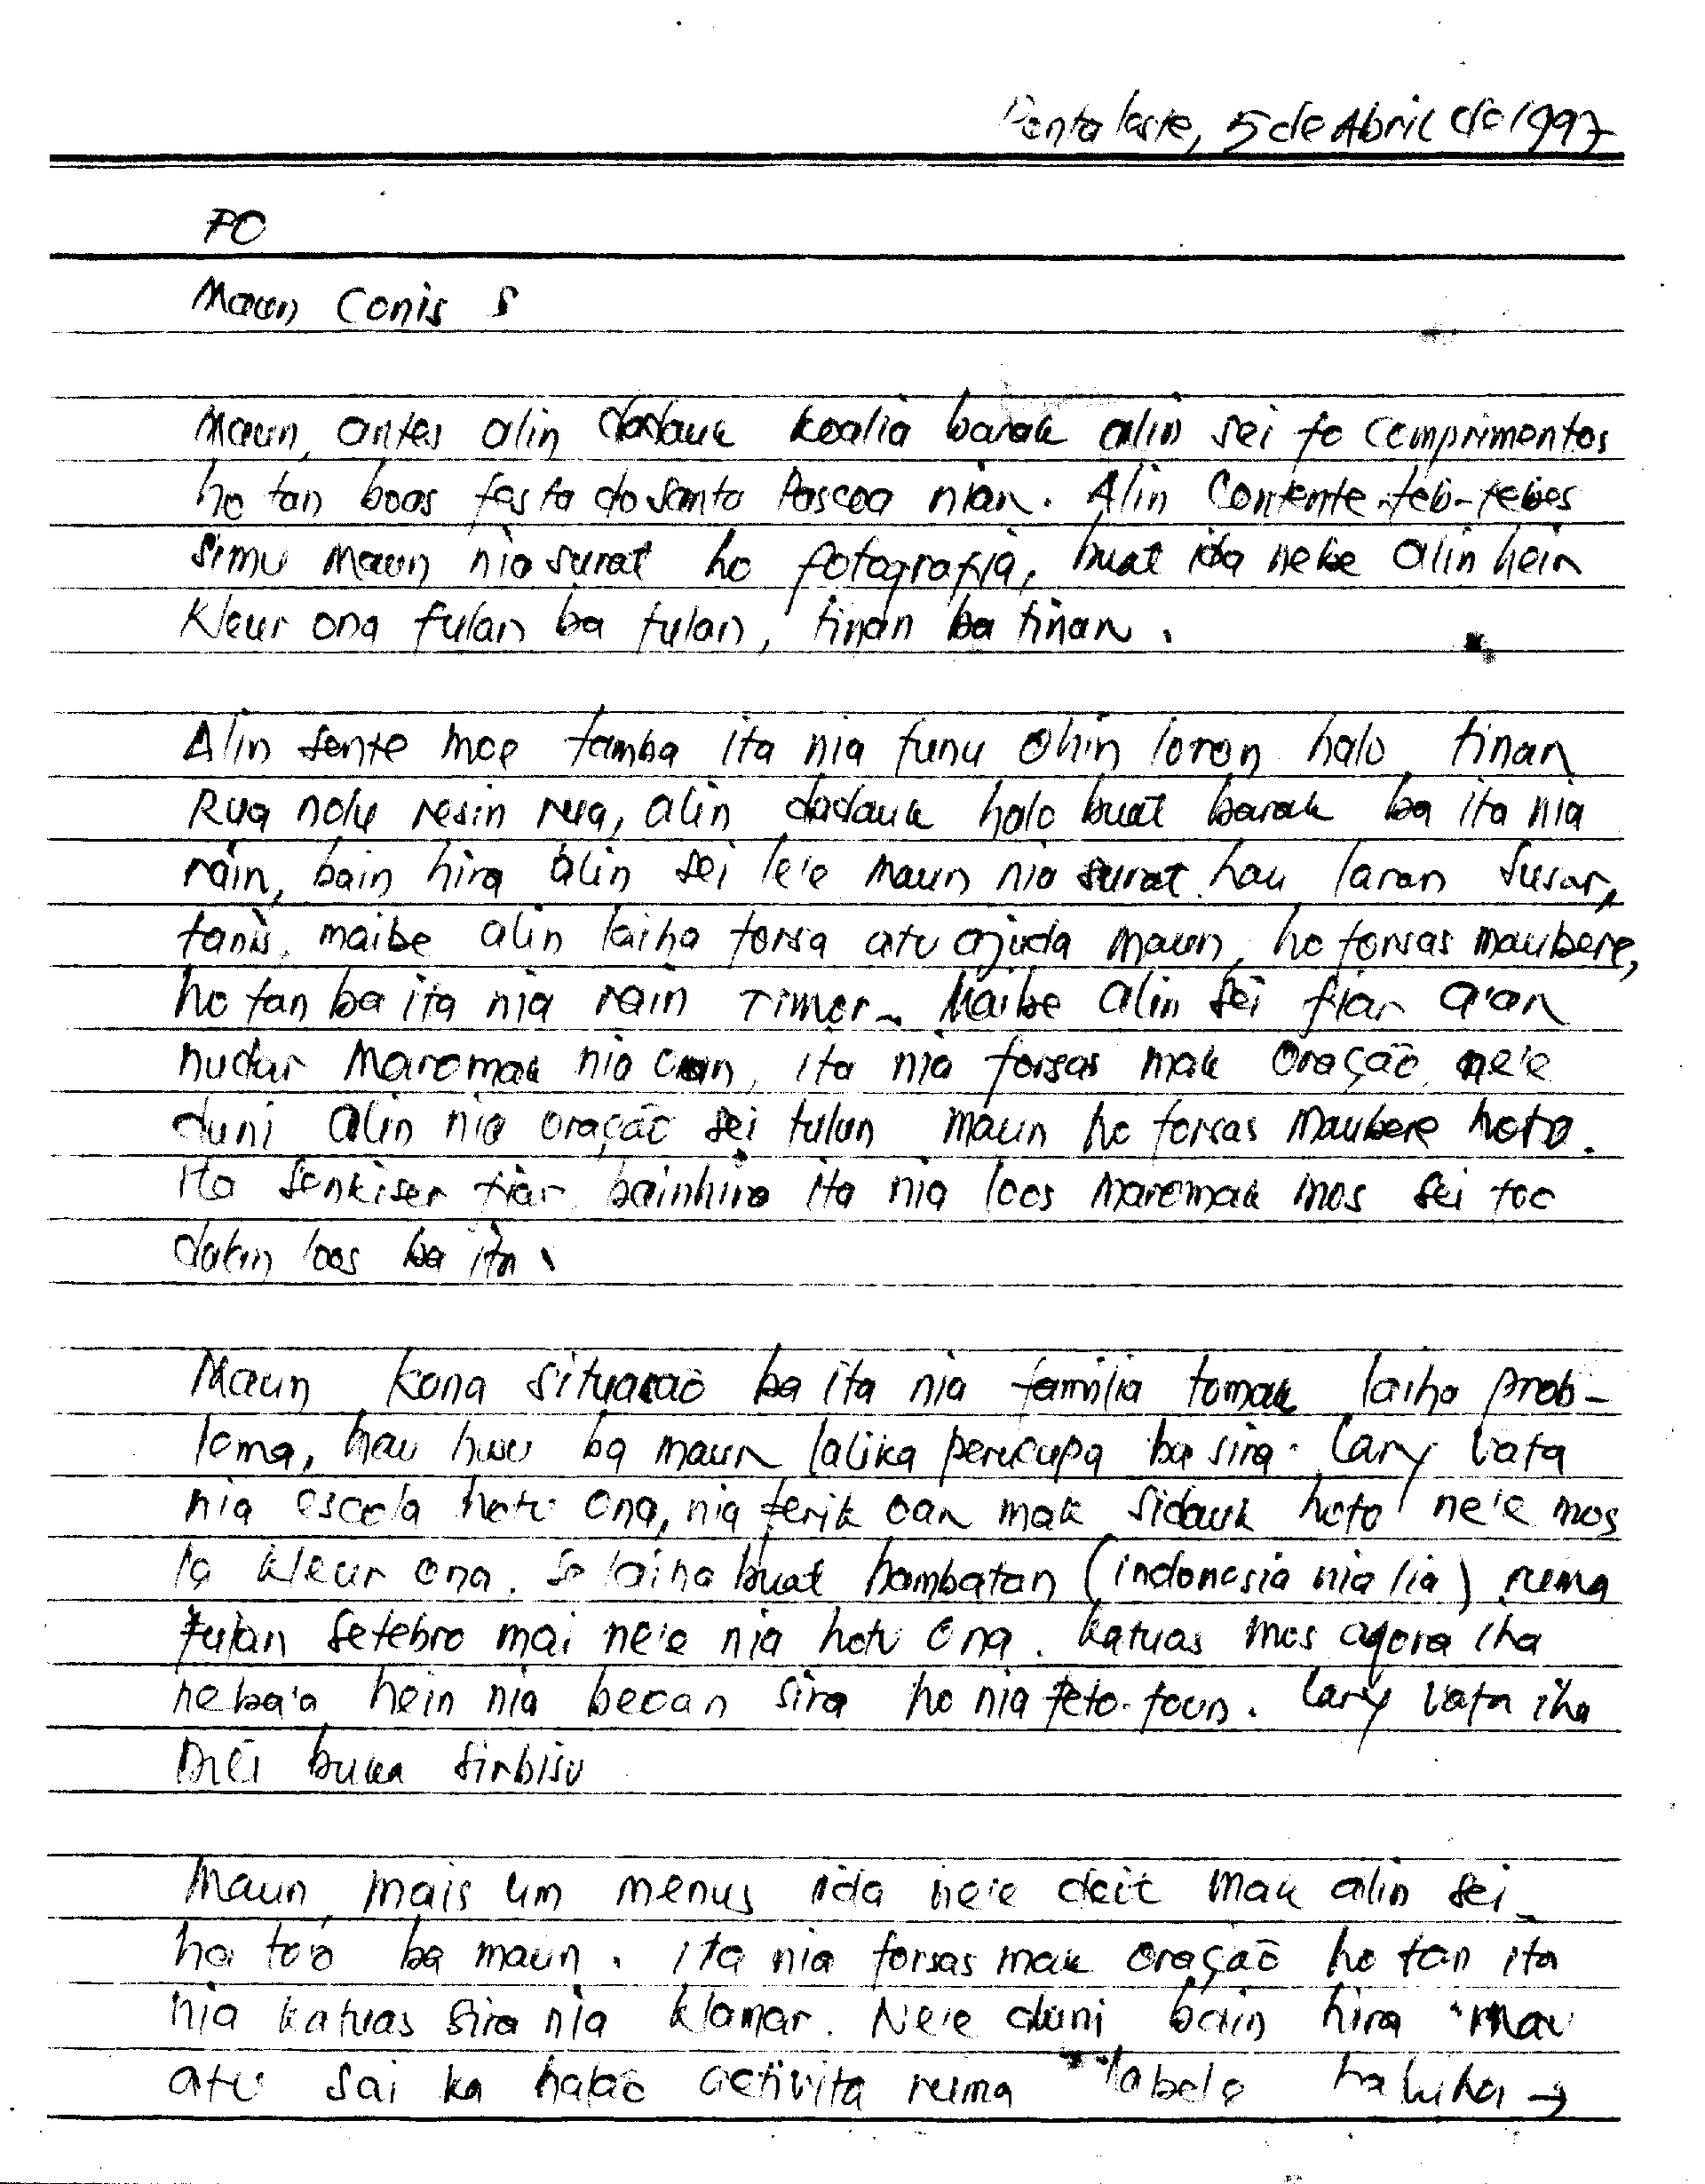 Ponta leste, 5 de Abril de 1997
PO
Maun Conis S
Maun, antes alin dadauk koalia barak alin sei fo comprimentos
ho tan boas festa do santo Pascoa nian. Alin Contente teb-tebes
simu maun nia surat ho fotografia, buat ida nebe alin hein
Kleur ona fulan ba fulan, tinan ba tinan.
Alin sente moe tamba ita nia funu ohin loron halo tinan
Rua nolu resin rua, alin dadauk halo buat barak ba ita nia
rain, bain hira alin sei le'e maun nia surat hau laran susar,
tanis, maibe alin laiha forsa atu ajuda maun, ho forsas maubere,
ho tan ba ita nia rain Timor. Maibe alin sei fiar a'an
nudar Maromak nia oan, ita nia forsas mak Oração, ne'e
duni alin nia oração sei tulun maun ho forsas Maubere hoto.
Ita senkiser fiar bainhira ita nia loos Maromak mos sei foo
dalan loos ba ita.
Maun kona situasaõ ba ita nia familia tomak laiha prob-
lema, hau husu ba maun lalika perucupa ba sira. Lary Vata
nia escola hotu ona, nia ferik oan mak sidauk hoto ne'e mos
la kleur ona. Se laiha buat hambatan (indonesia nia lia) ruma
fulan Setebro mai ne'e nia hotu ona. Katuas mos agora iha
neba'a hein nia beoan sira ho nia feto-foun. Lary Vata iha
Dili buka sirbisu
Maun, mais um menus ida ne'e deit mak alin sei
ha to'o ba maun. Ita nia forsas mak oração ho tan ita
nia katuas sira nia klamar. Ne'e duni bain hira mau
atu sai ka halao activita ruma labele haluha →